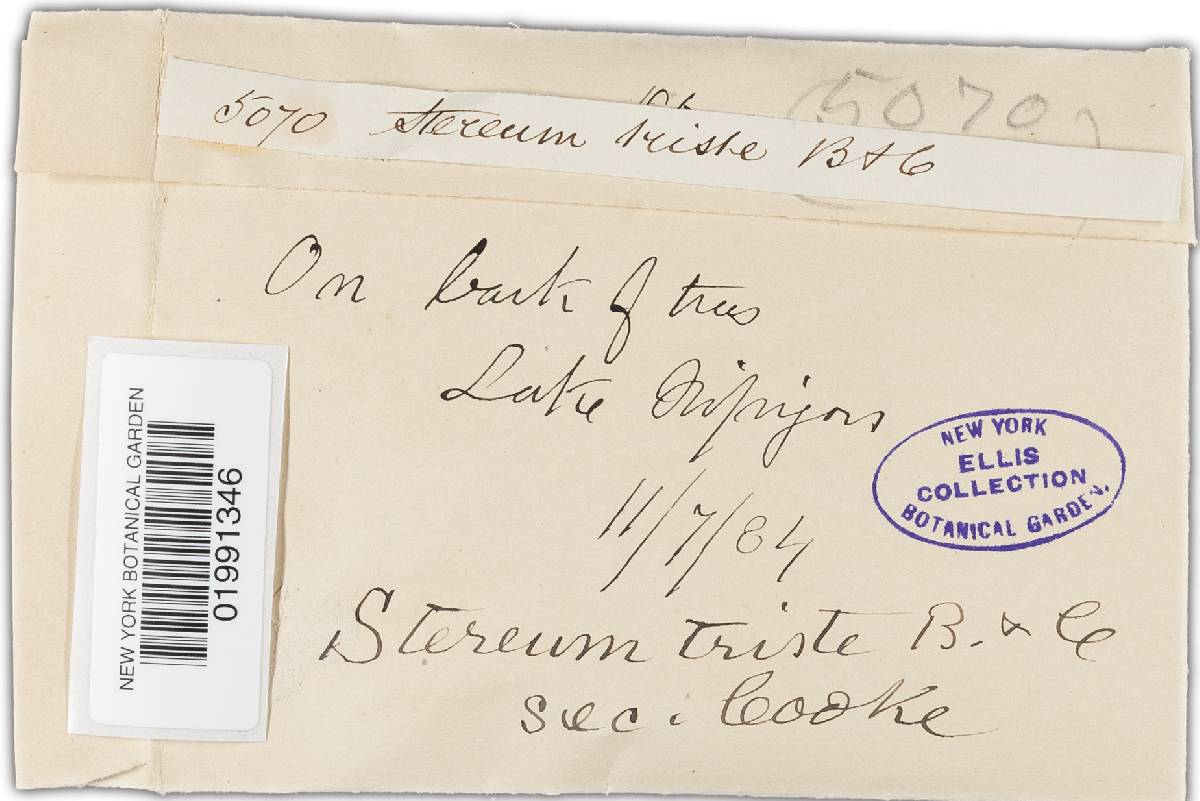 5070
5070 Stereum triste B & C
On bark of trees
Lake Nipigon
11/7/84
Stereum triste B. & C
sec. Cooke
NEW YORK
ELLIS
COLLECTION
BOTANICAL GARDEN.
NEW YORK BOTANICAL GARDEN
01991346